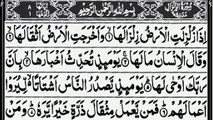 بِسْمِ اللهِ الرَّحْمٰنِ الرَّحِيْمِ
اِذَا زُلْزِلَتِ الْاَرْضُ زِلْزَالَهَا ۙ وَاَخْرَجَتِ الْاَرْضُ اَثْقَالَهَا ۙ
وَقَالَ الْاِنْسَانُ مَا لَهَا ۚ يَوْمَىِٕذٍ تُحَدِّثُ اَخْبَارَهَا ۙ بِاَنَّ
رَبَّكَ اَوْحٰى لَهَا ؕ يَوْمَىِٕذٍ يَّصْدُرُ النَّاسُ اَشْتَاتًا ۙ لِّيُرَوْا
اَعْمَالَهُمْ ؕ فَمَنْ يَّعْمَلْ مِثْقَالَ ذَرَّةٍ خَيْرًا يَّرَهٗ ؕ وَمَنْ